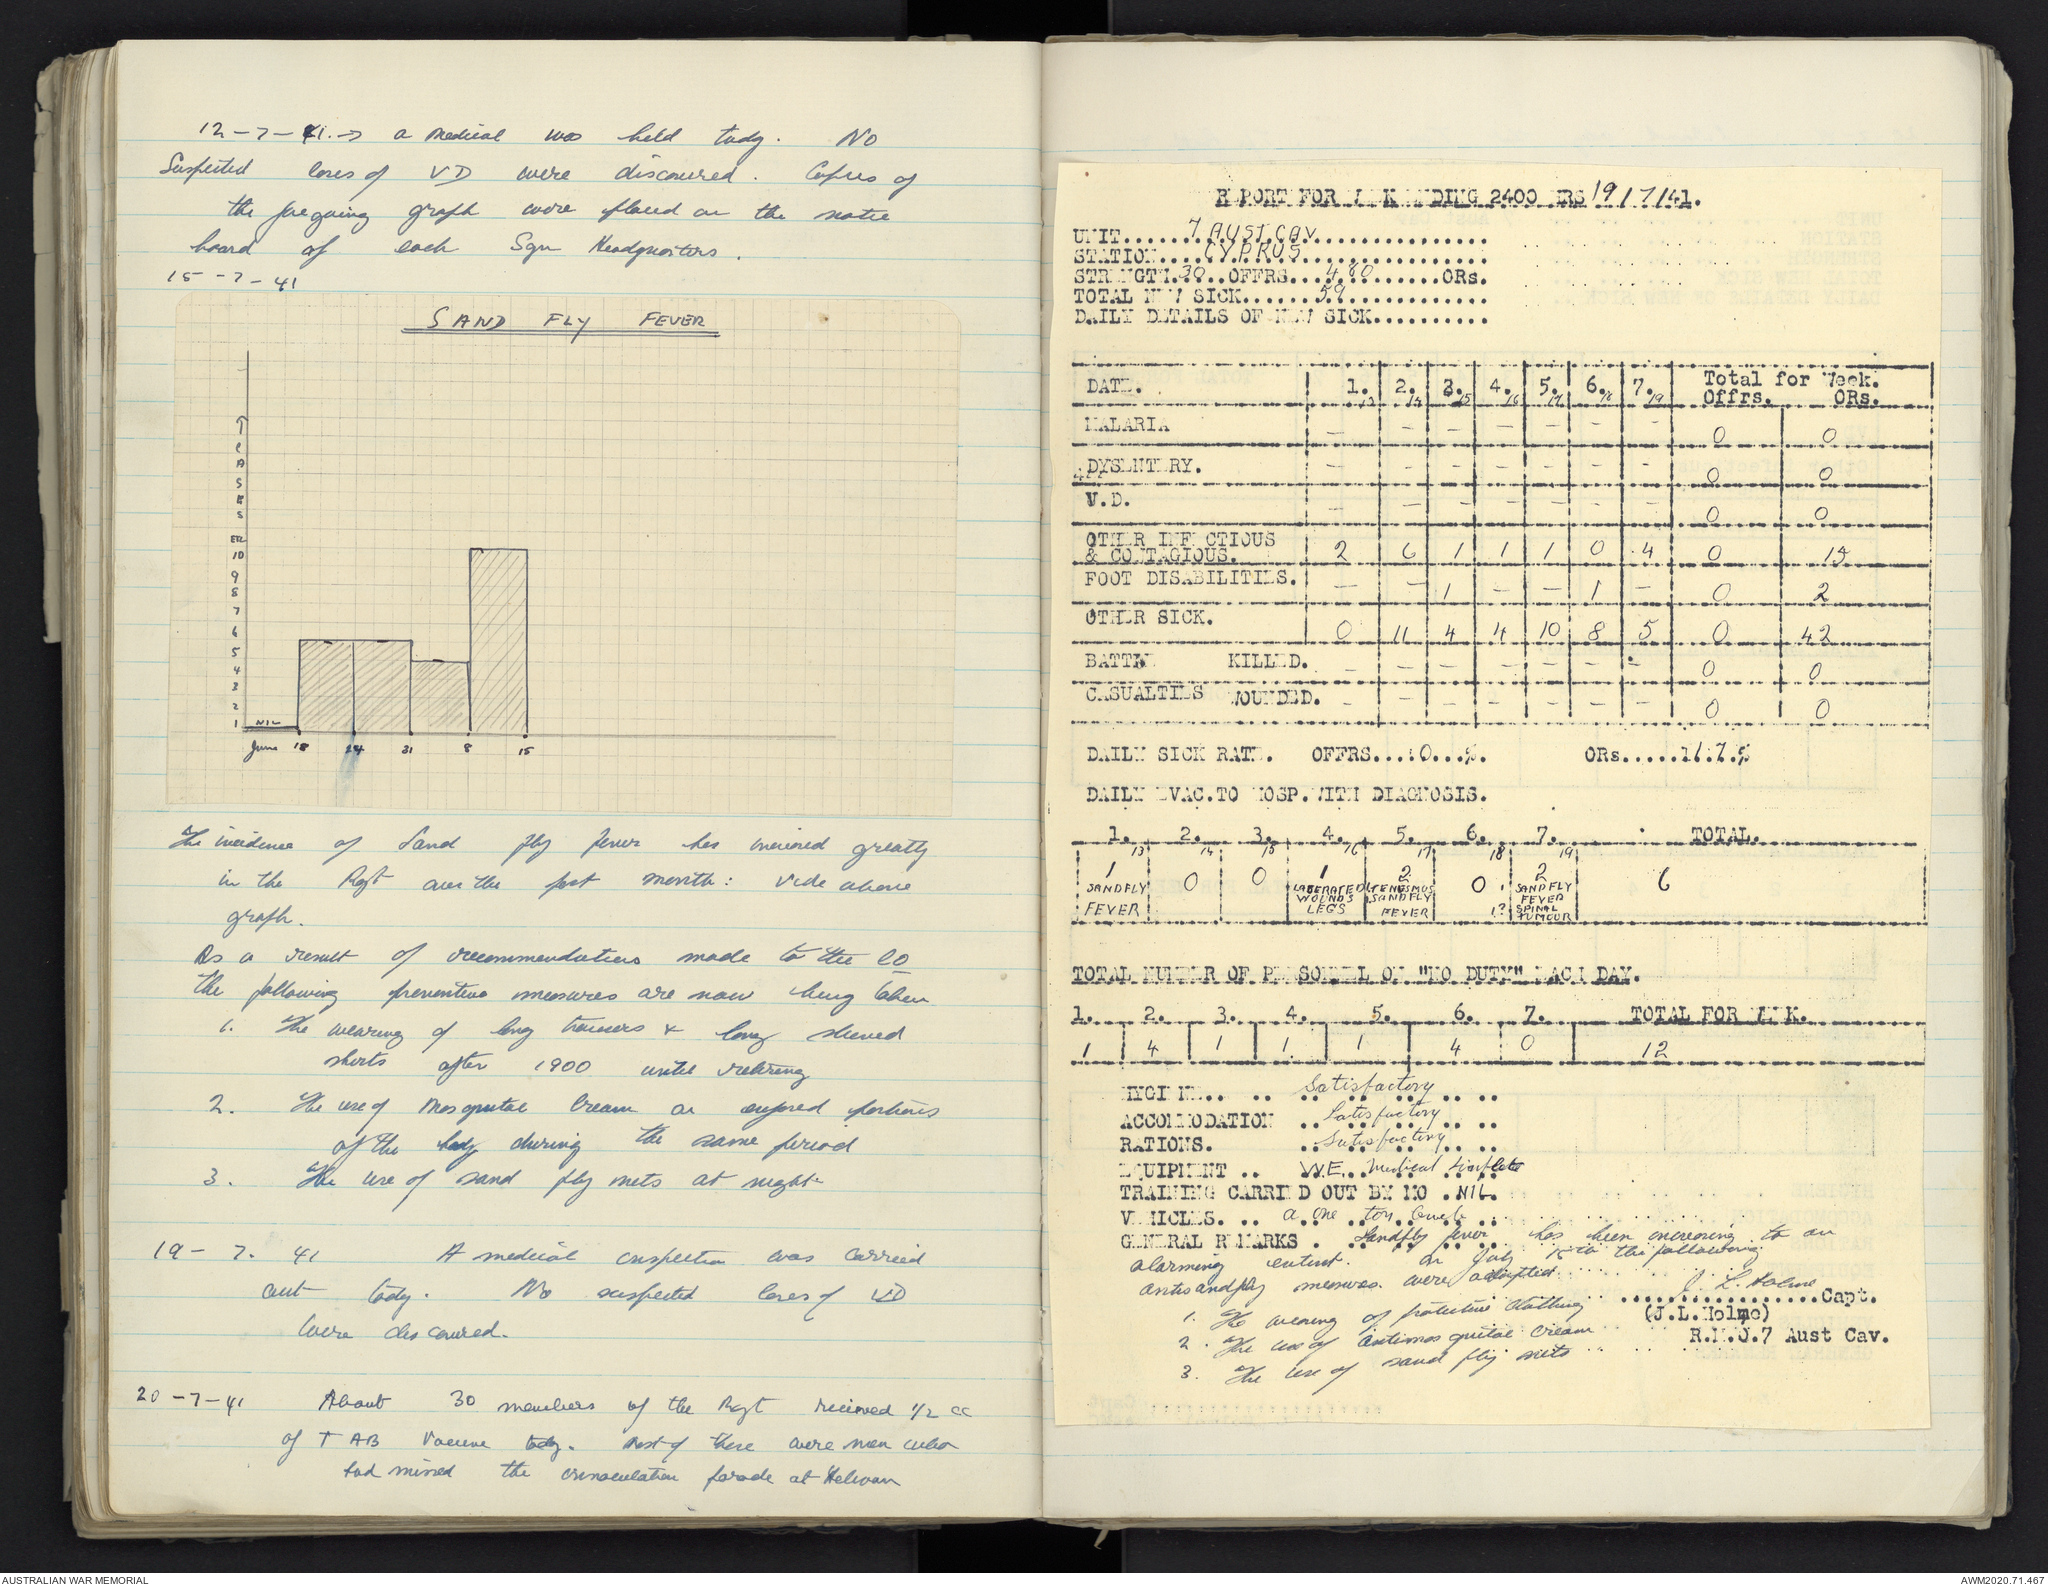 12-7-41. → a medical was held today. No
Suspected cases of VD were discovered. Copies of
the foregoing graph were placed on the notice
board of each Sqn Headquarters.
15-7-41
SAND FLY FEVER
↑
C
A
S
E
S
10
9
8
7
6
5
4
3
2
1
NIL
June 18 24 31 8 15
The incidence of Sand fly fever has increased greatly
in the Regt over the past month: Vide above
graph.
As a result of recommendations made to the CO
the following preventive measures are now being taken
1. The wearing of long trousers & long sleeved
shirts after 1900 until retiring
2. The use of Mosquito Cream on exposed portions
of the body during the same period
3. The use of sand fly nets at night
19-7. 41 A medical inspection was carried
out today. No suspected cases of VD
were discovered.
20-7-41 About 30 members of the Regt received 1/2 cc
of TAB Vaccine today. Most of these were men who
had missed the innoculation parade at Helwan
REPORT FOR WEEK ENDING 2400 HRS 19/7/41.
UNIT......7 AUST CAV................
STATION....CYPRUS................
STRENGTH.30..OFFRS...480.......ORs.
TOTAL NEW SICK......59............
DAILY DETAILS OF NEW SICK..........
DATE. 1./13 2./14 3./15 4./16 5./17 6./18 7./19 Total for Week.
Offrs. ORs.
MALARIA - - - - - - - 0 0
DYSENTERY. - - - - - - - 0 0
V.D. - - - - - - - 0 0
OTHER INFECTIOUS
& CONTAGIOUS. 2 6 1 1 1 0 4 0 15
FOOT DISABILITIES. - - 1 - - 1 - 0 2
OTHER SICK. 0 11 4 4 10 8 5 0 42
BATTLE KILLED. - - - - - - - 0 0
CASUALTIES WOUNDED. - - - - - - - 0 0
DAILY SICK RATE. OFFRS....0...%. ORs.....1.7.%
DAILY EVAC.TO HOSP.WITH DIAGNOSIS.
1. 2. 3. 4. 5. 6. 7. TOTAL.
13 14 15 16 17 18 19
1 0 0 1 2 0 2 6
SANDFLY FEVER
LACERATED WOUNDS LEGS
TENESMUS SANDFLY FEVER
SANDFLY FEVER SPINAL TUMOUR 1?
TOTAL NUMBER OF PERSONNEL ON "NO DUTY" EACH DAY.
1. 2. 3. 4. 5. 6. 7. TOTAL FOR WEEK.
1 4 1 1 1 4 0 12
HYGIENE.. .. Satisfactory
ACCOMMODATION .. Satisfactory
RATIONS. .. Satisfactory
EQUIPMENT .. W.E. Medical complete
TRAINING CARRIED OUT BY MO . NIL.
VEHICLES. .. a one ton truck
GENERAL REMARKS . Sandfly fever has been increasing to an
alarming extent. On July 15th the following
antisandfly measures were adopted
J. L. Holme
..................Capt.
(J.L.Holme)
R.M.O.7 Aust Cav.
1. The wearing of protective clothing
2. The use of antimosquito cream
3. The use of sand fly nets
AUSTRALIAN WAR MEMORIAL
AWM2020.71.467